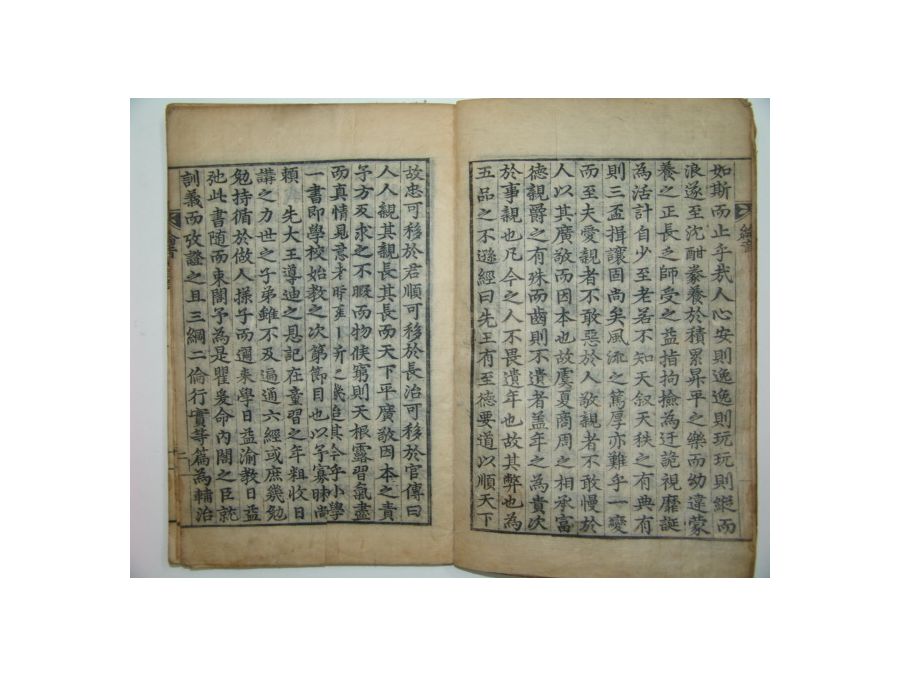 如斯而止乎哉人心安則逸逸則玩玩則縱而
浪遂至沈酣豢養於積累昇平之樂而幼違蒙
養之正長之師受之益指拘撿為迂詭視靡誕
為活計自少至老若不知天叙天秩之有典有
則三盃揖讓固尚矣風流之篤厚亦難乎一變
而至夫愛親者不敢惡於人敬親者不敢慢於
人以其廣敬而因本也故虞夏商周之相承富
德親爵之有殊而齒則不遺者盖年之為貴次
於事親也凡今之人不畏遺年也故其弊也為
五品之不遜經曰先王有至德要道以順天下
綸音
故忠可移於君順可移於長治可移於官傳曰
人人親其親長其長而天下平廣敬因本之責
予方反求之不暇而物候窮則天根露習氣盡
而真情見意者其今乎小學
一書即學校始教之次第節目也以予寡昧尚
賴先大王導迪之恩記在童習之年粗收日
講之力世之子弟雖不及遍通六經或庶幾勉
勉持循於做人㨾子而邇來學日益渝教日益
弛此書随而束閣予為是瞿爰命內閣之臣就
訓義而攷證之且三綱二倫行實等篇為輔治